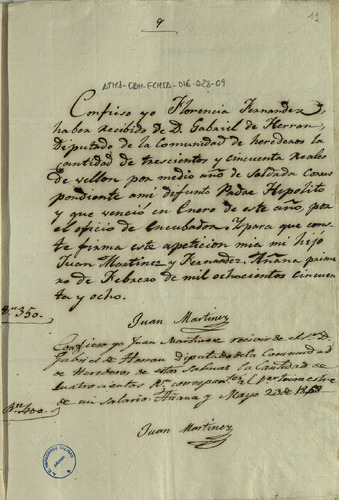 9
11
ATHA-DAH-FCHSA-016-020-09
Confieso yo Florencia Fernandez,
haber recibido de D. Gabriel de Herran,
Diputado de la Comunidad de herederos la
cantidad de trescientos y cincuenta reales
de vellon por medio año de Soldada Corres
pondiente ami difunto Padre Hipolito
y que venció en Enero de este año, por
el oficio de Encubador. Y para que cons
te firma esta apeticion mia mi hijo
Juan Martinez y Fernandez. Añana prime
ro de Febrero de mil ochocientos cincuen
ta y ocho.
Rn. 350.
Juan Martinez
Confieso yo Juan Martinez recivir del Sr. D.
Gabriel de Herran Diputado de la Comunidad
de Herederos de estas Salinas la Cantidad de
cuatrocientos Rs. correspondte. al pr. trimestre
de mi salario. Añana y Mayo 23 de 1858
Rn. 400.
Juan Martinez